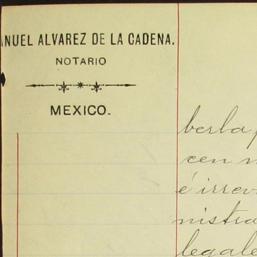 ANUEL ALVAREZ DE LA CADENA.
NOTARIO
MEXICO.
cen
é irrev
nistra
legale